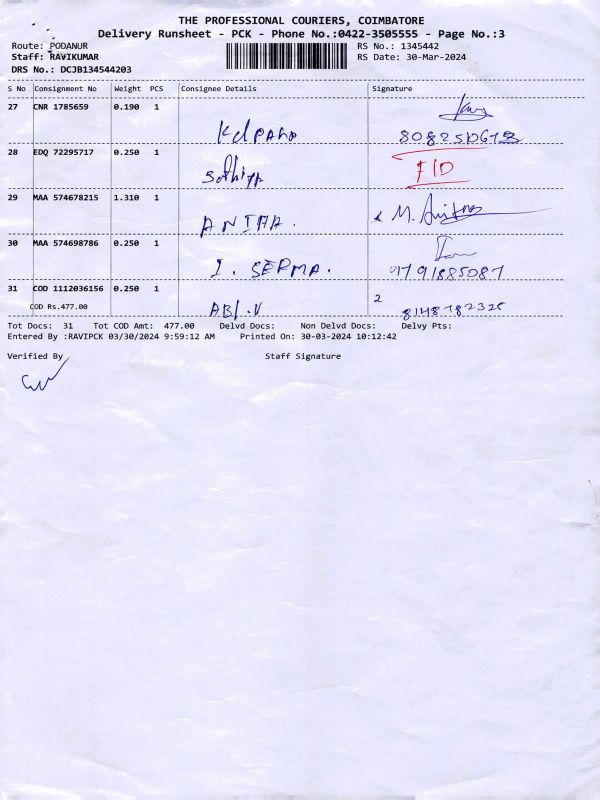 THE PROFESSIONAL COURIERS, COIMBATORE
Delivery Runsheet - PCK - Phone No.:0422-3505555 - Page No.:3
Route: PODANUR RS No.: 1345442
Staff: RAVIKUMAR RS Date: 30-Mar-2024
DRS No.: DCJB134544203
S No Consignment No Weight PCS Consignee Details Signature
27 CNR 1785659 0.190 1
28 EDQ 72295717 0.250 1
Sathiya FID
29 MAA 574678215 1.310 1
ANITHA.
30 MAA 574698786 0.250 1
I. SERMA. 9791885087
31 COD 1112036156 0.250 1
COD Rs.477.00
ABI.V 8148782325
Tot Docs: 31 Tot COD Amt: 477.00 Delvd Docs: Non Delvd Docs: Delvy Pts:
Entered By :RAVIPCK 03/30/2024 9:59:12 AM Printed On: 30-03-2024 10:12:42
Verified By Staff Signature